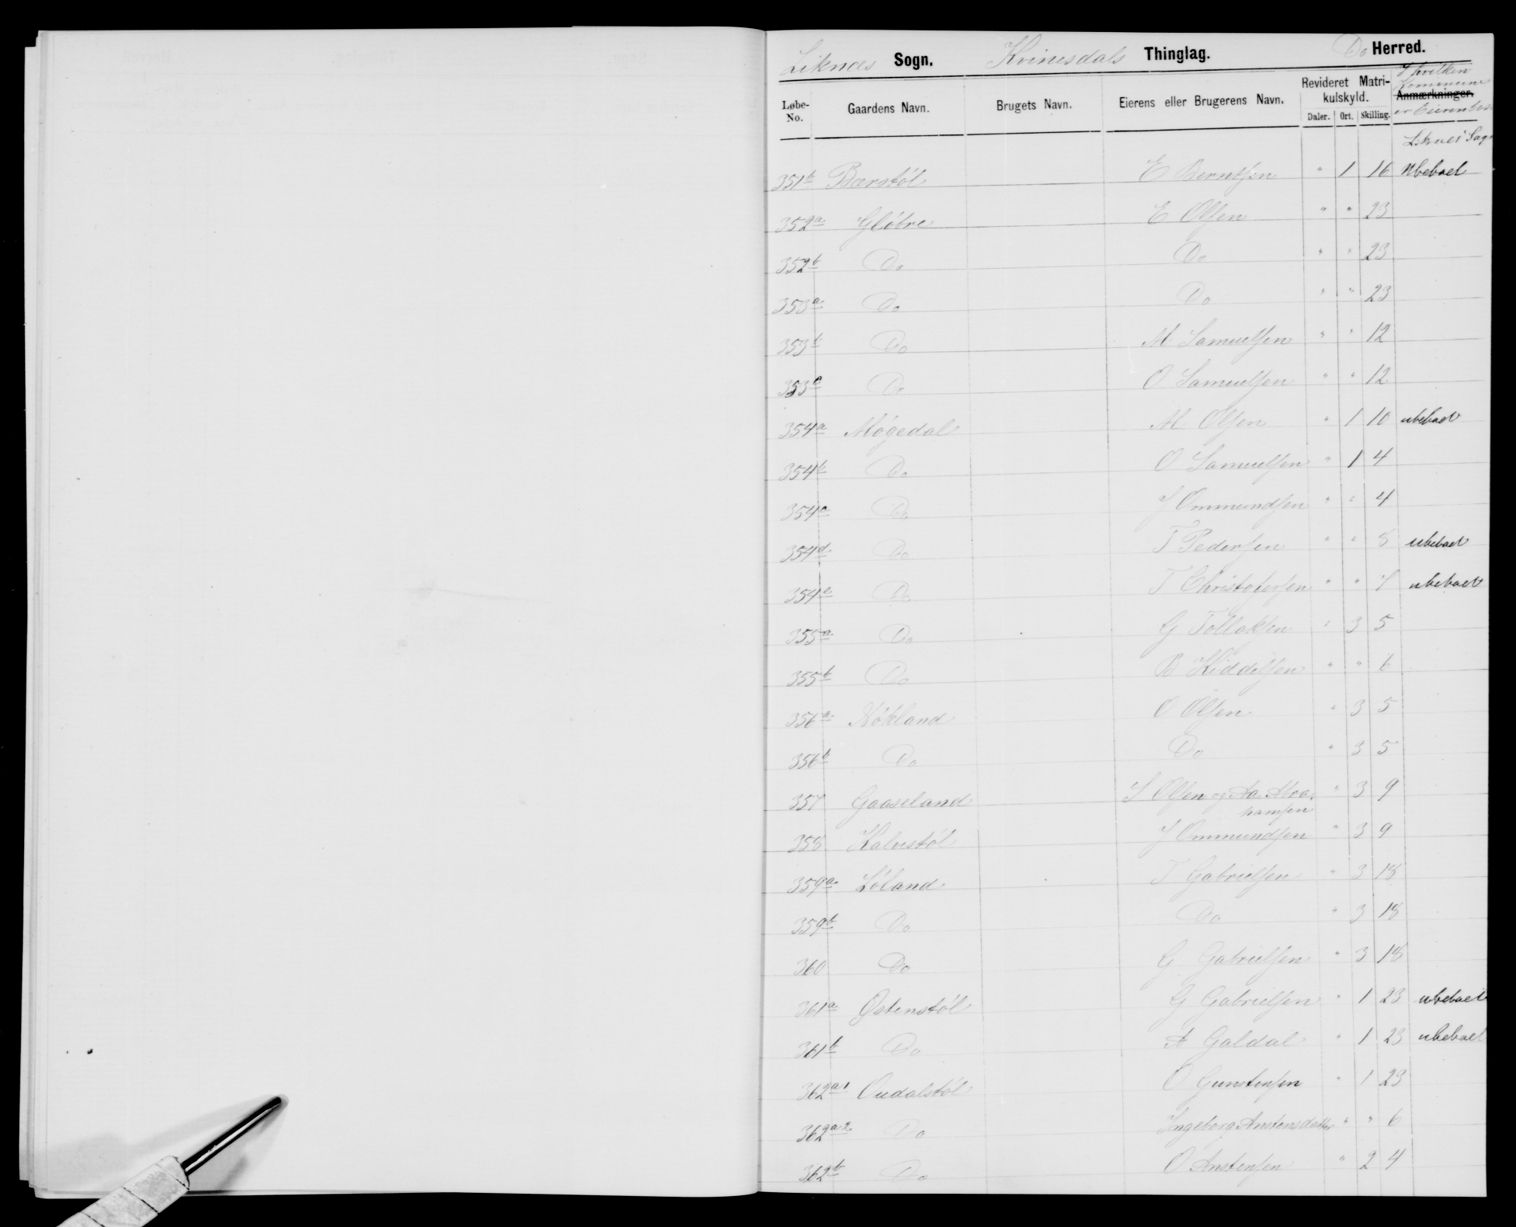 Liknes Sogn. Kvinesdals Thinglag. Do Herred.
Løbe-No. Gaardens Navn. Brugets Navn. Eierens eller Brugerens Navn. Revideret Matrikulskyld. Daler. Ort. Skilling. Anmærkninger. I hvilken Kommune er Eieren
Liknes Sogn
351b Bærstøl E Berntsen " 1 16 Ubeboet
352a Gløbre E Olsen " " 23
352b Do Do " " 23
353a Do Do " " 23
353b Do M Samuelsen " " 12
353c Do O Samuelsen " " 12
354a Møgedal M Olsen " 1 10 ubeboet
354b Do O Samuelsen " 1 4
354c Do J Ommundsen " " 4
354d Do T Pedersen " " 8 ubeboet
354e Do T Christofersen " " 7 ubeboet
355a Do G Tollaksen " 3 5
355b Do B Kiddelsen " " 6
356a Nøkland O Olsen " 3 5
356b Do Do " 3 5
357 Gaaseland S Olsen og Aa Abra-
hamsen " 3 9
358 Kalvstøl J Ommundsen " 3 9
359a Løland T Gabrielsen " 3 18
359b Do Do " 3 18
360 Do G Gabrielsen " 3 18
361a Østenstøl G Gabrielsen " 1 23 ubeboet
361b Do A Galdal " 1 23 ubeboet
362a1 Oudalstøl O Gunstensen " 1 23
362a2 Do Ingeborg Anstensdatter " " 6
362b Do O Anstensen " 2 4